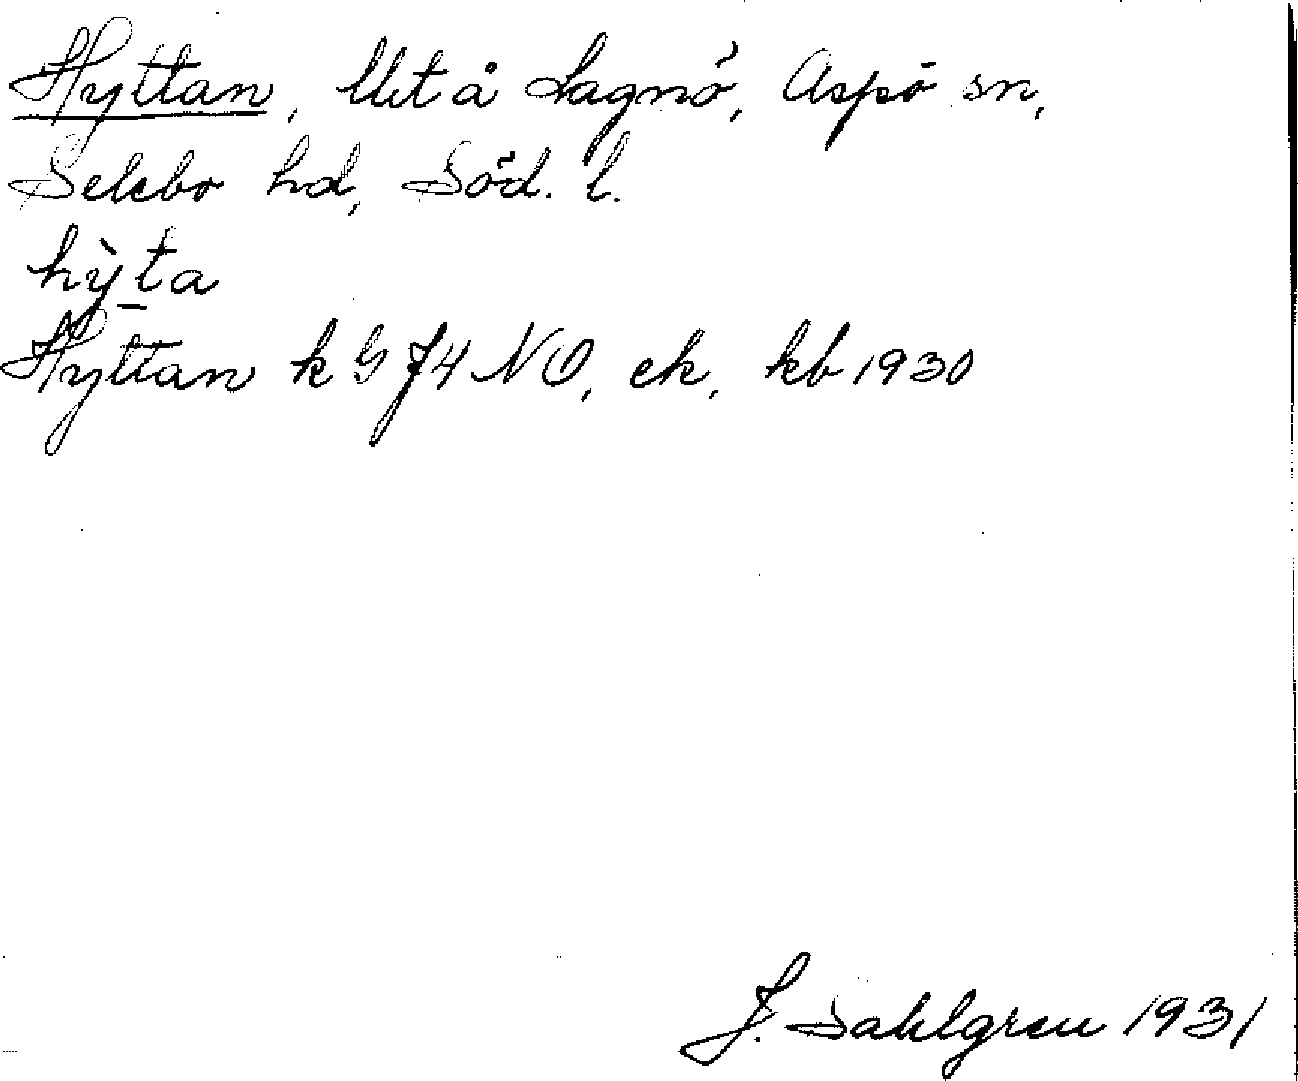 Hyttan, Ut å Lagnö, Aspö sn,
Selebo hd, Söd. l.
hy̆̀ta
Hyttan k G J4 NO, ek, kb 1930
J. Sahlgren 1931